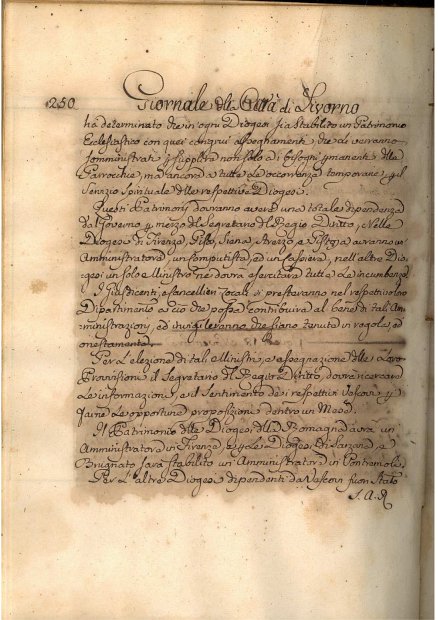 250 Giornale della Città di Livorno
ha determinato che in ogni Diogesi sia stabilito un Patrimonio
Eclesiastico con quei congrui assegnamenti, che li verranno
somministrati p supplire non solo ai bisogni permanenti delle
Parrocchie, ma ancora a tutte le occorrenze temporanee, p il
Servizio Spirituale delle respettive Diogesi.
Questi Patrimoni dovranno avere una totale dipendenza
dal Governo p mezzo del Segretario del Regio Diritto, e nelle
Diogesi di Firenze, Pisa, Siena, Arezzo, e Pistoja avranno un
Amministratore, un Computista, ed un Cassiere, nell'altre Dio=
gesi un solo Ministro ne dovrà esercitare tutte le incumbenze
I Giusdicenti, e Cancellieri locali si presteranno nel respettivo loro
Dipartimento a ciò che possa contribuire al bene di tali Am=
ministrazioni, ed invigileranno che siano tenute in regola, ed
onestamente.
Per l'elezione di tali Ministri, e assegnazione delle loro
Provvisioni il Segretario del Regio Diritto dovrà ricercare
le informazioni, e il sentimento dei respettivi Vescovi p
farne le opportune proposizioni dentro un Mese.
Il Patrimonio delle Diogesi della Romagna avrà un
Amministratore in Firenze, e p le Diogesi di Luzzana, e
Brugnato sarà stabilito un Amministratore in Pontremoli.
Per l'altre Diogesi dipendenti da Vescovi fuori Stato
S.A.R